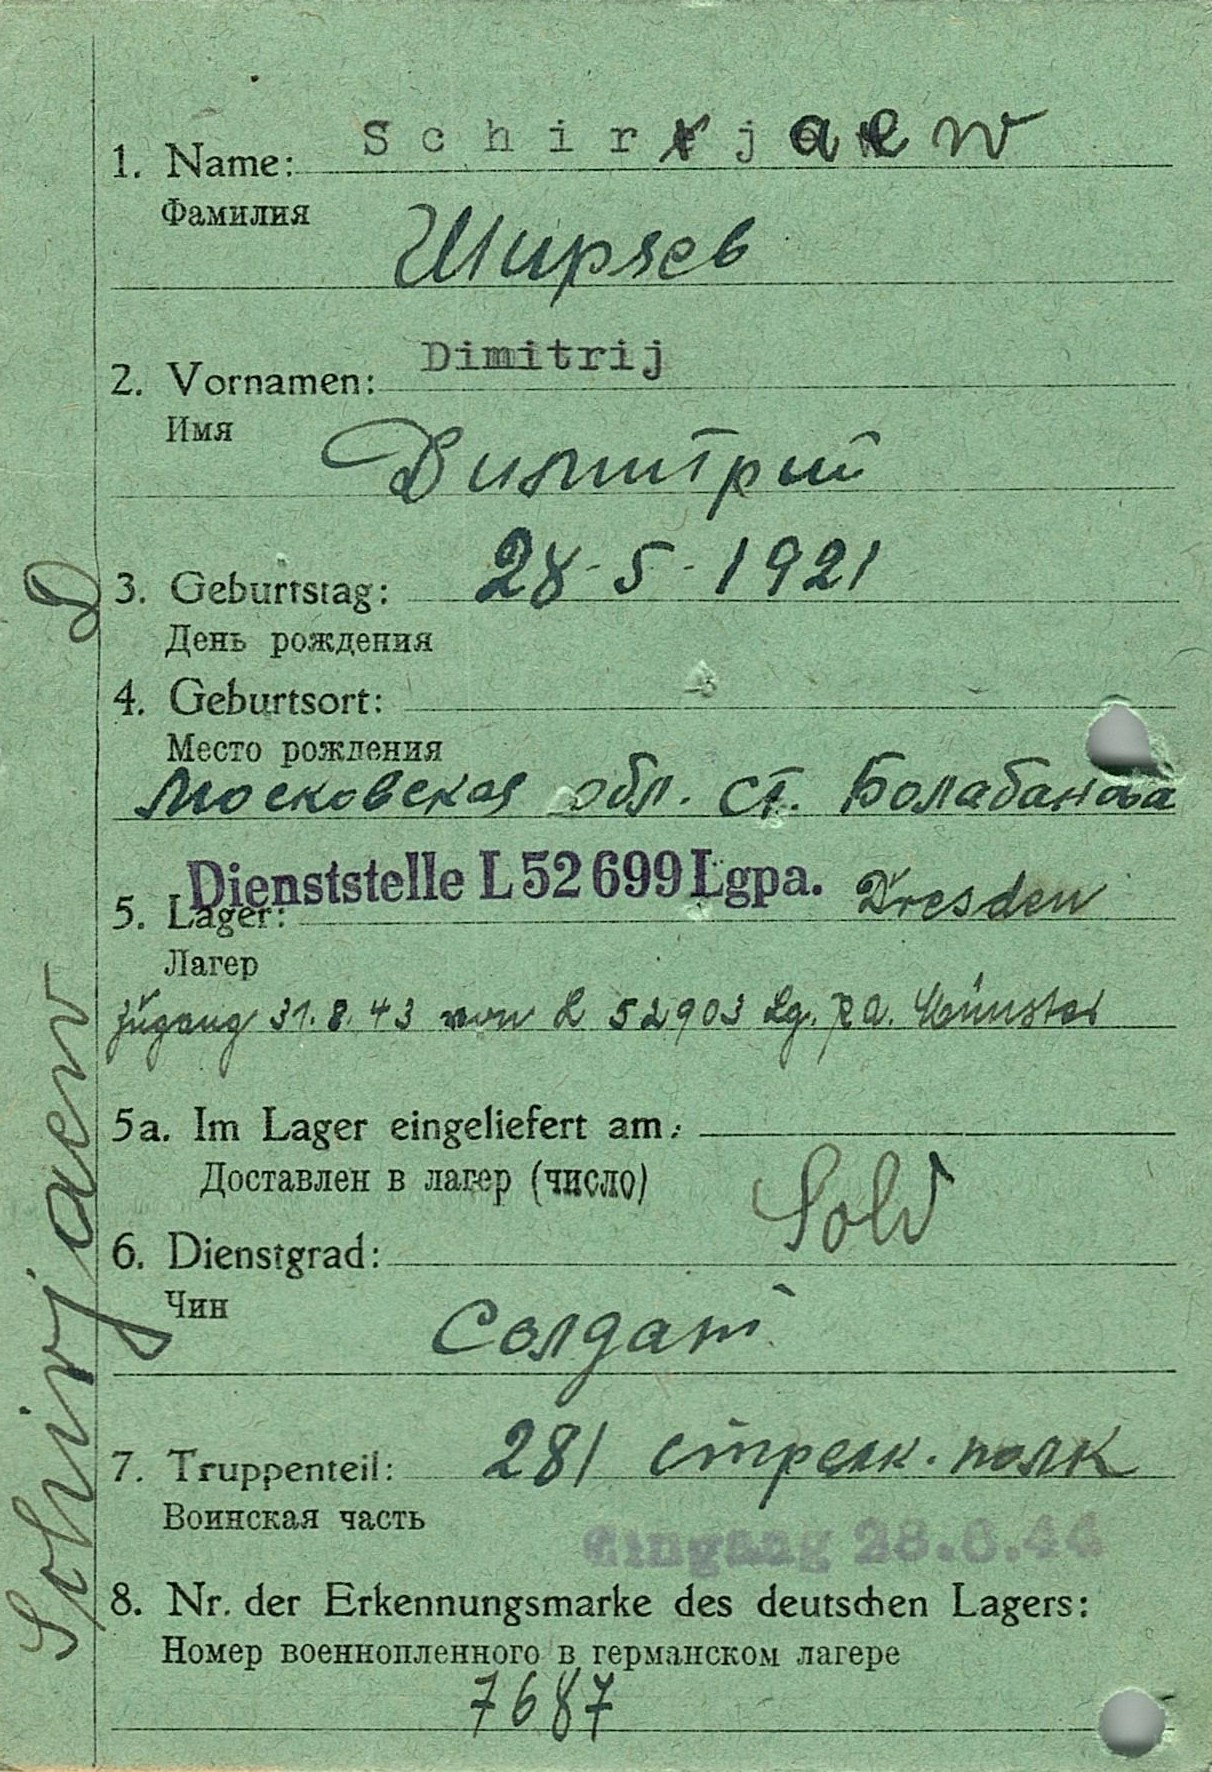 Schirjaew
1. Name:
Фамилия
Ширяев
Dimitrij
2. Vornamen:
Имя
Димитрий
3. Geburtstag: 28-5-1921
День рождения
4. Geburtsort:
Место рождения
Московская обл. ст. Болабанова
Dienststelle L 52 699 Lgpa. Dresden
5. Lager:
Лагер
Zugang 31.8.43 von L 52903 Lg. pa. Münster
5a. Im Lager eingeliefert am:
Доставлен в лагер (число)
Sold
6. Dienstgrad:
Чин
Солдат
7. Truppenteil: 281 стрелк. полк
Воинская часть
Eingang 28.6.44
8. Nr. der Erkennungsmarke des deutschen Lagers:
Номер военнопленного в германском лагере
7687
Schirjaew D